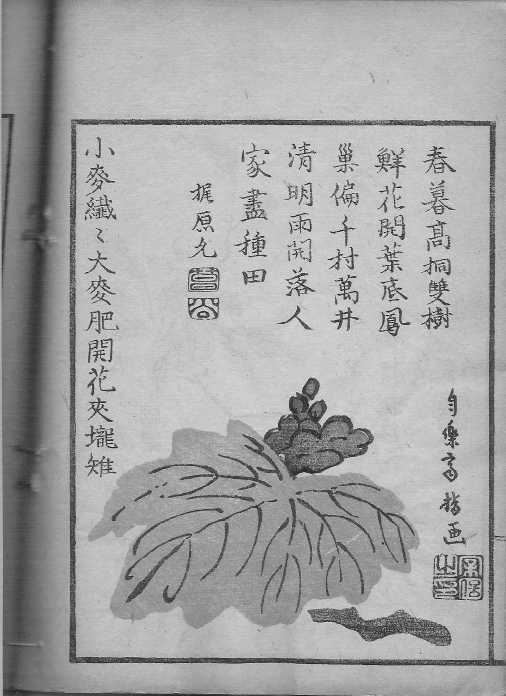 春暮高桐雙樹
鮮花開葉底鳳
巢偏千村萬井
清明雨開落人
家盡種田
梶原允
小麥纖〻大麥肥開花夾壠雉
自樂斎 画